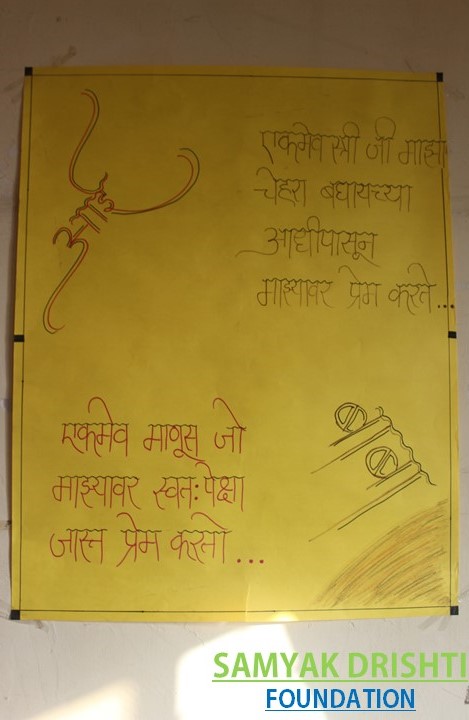 आई
एकमेव स्त्री जी माझा
चेहरा बघायच्या
आधीपासून
माझ्यावर प्रेम करते...
एकमेव माणूस जो
माझ्यावर स्वतःपेक्षा
जास्त प्रेम करतो...
बाबा
SAMYAK DRISHTI
FOUNDATION